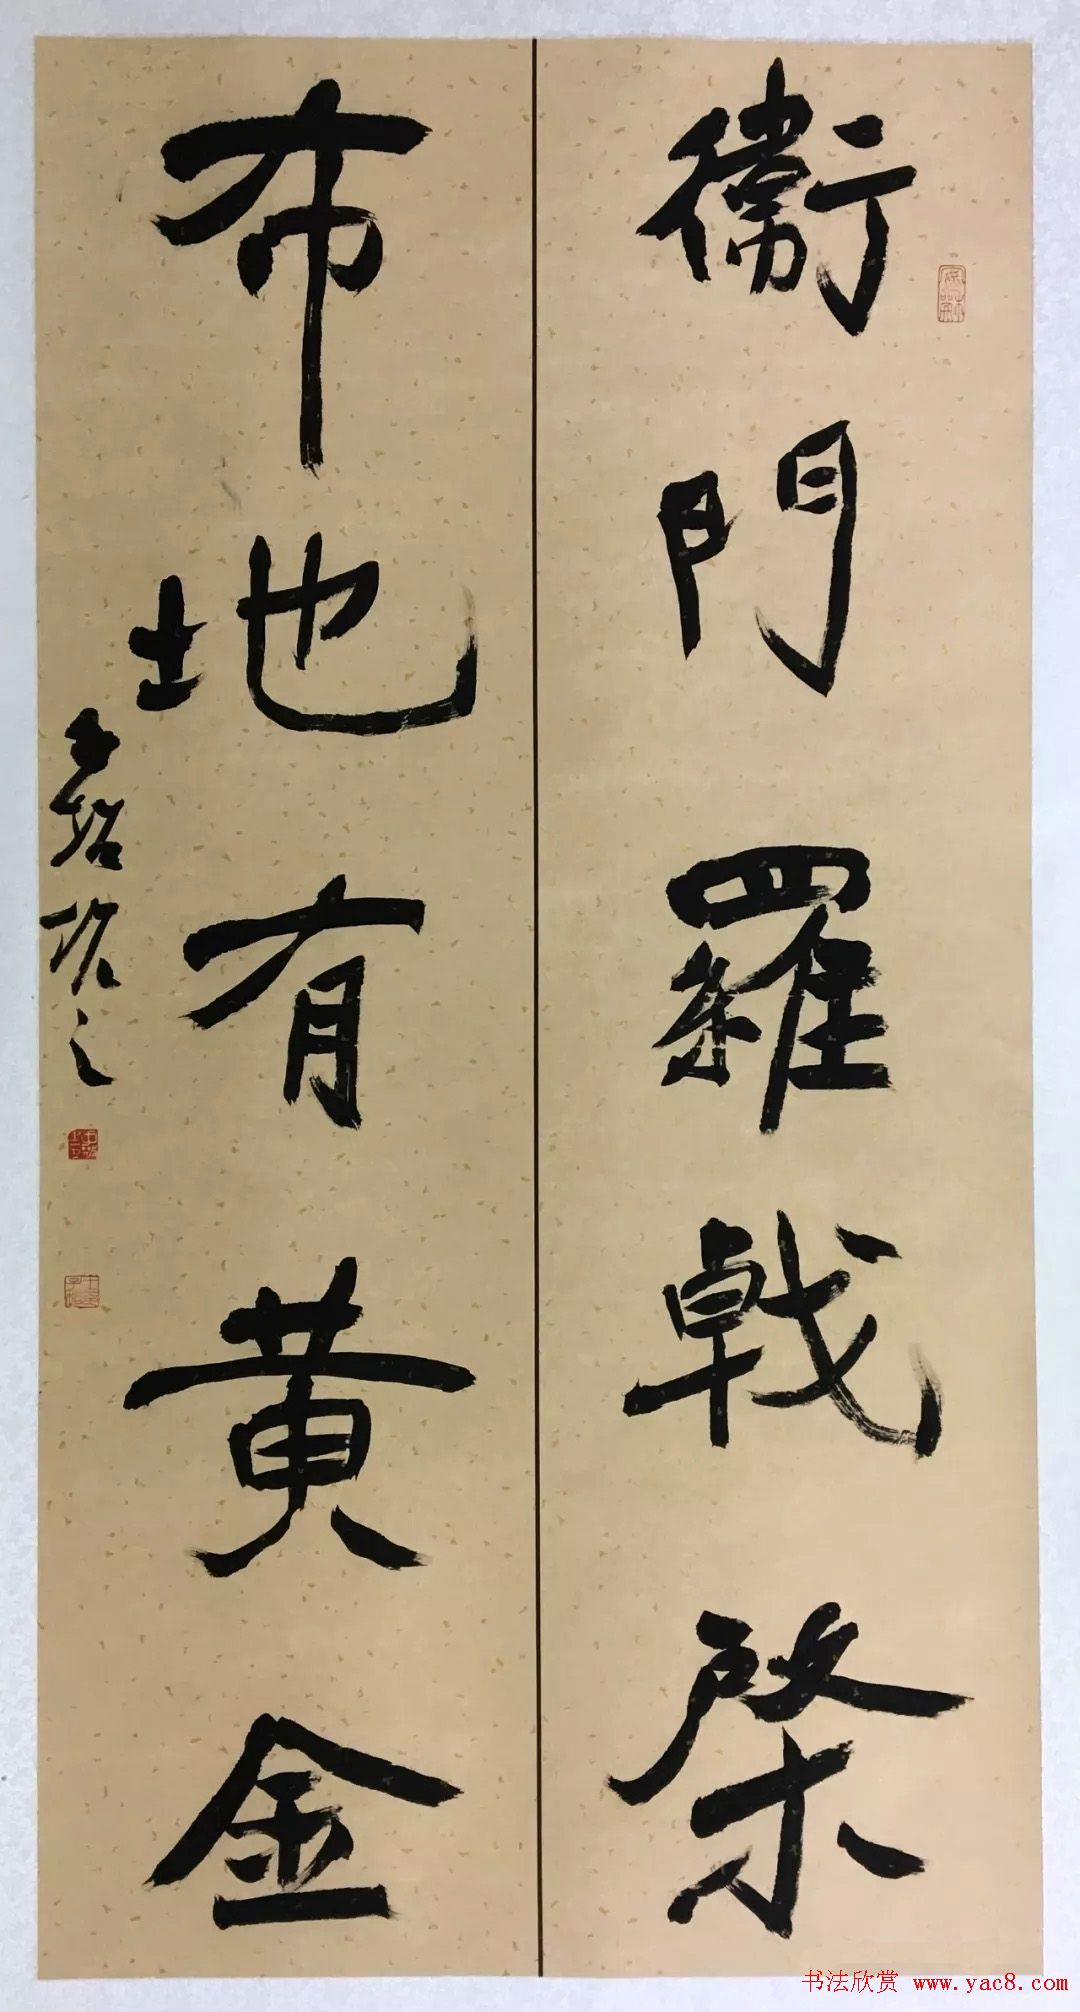 衛門羅戟棨
布地有黄金
书法欣赏 www.yac8.com